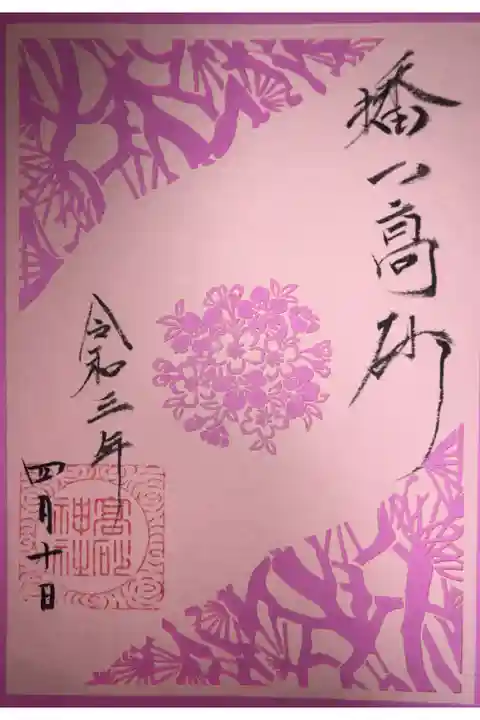 播州高砂
令和三年
四月十日
高砂
神社